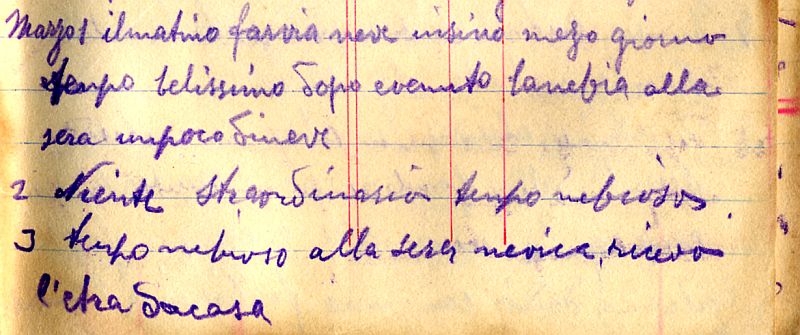 Marzo 1 ilmatino farvia neve insino mezo giorno
tempo belissimo dopo evenuto lanebia alla
sera unpoco dineve
2 Niente straordinario tempo nebioso
3 tempo nebioso alla sera nevica, ricevo
l'etra dacasa